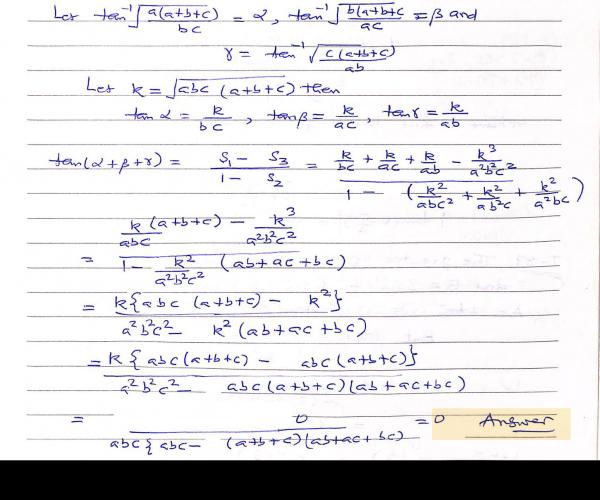 Let tan⁻¹√(a(a+b+c)/bc) = α, tan⁻¹√(b(a+b+c)/ac) = β and
γ = tan⁻¹√(c(a+b+c)/ab)
Let k = √(abc (a+b+c)) then
tan α = k/bc, tan β = k/ac, tan γ = k/ab
tan(α+β+γ) = (S₁ - S₃)/(1 - S₂) = (k/bc + k/ac + k/ab - k³/a²b²c²)/(1 - (k²/abc² + k²/ab²c + k²/a²bc))
= (k/abc (a+b+c) - k³/a²b²c²)/(1 - k²/a²b²c² (ab+ac+bc))
= k{abc (a+b+c) - k²}/(a²b²c² - k²(ab+ac+bc))
= k{abc(a+b+c) - abc(a+b+c)}/(a²b²c² - abc(a+b+c)(ab+ac+bc))
= 0/(abc{abc - (a+b+c)(ab+ac+bc)) = 0 Answer